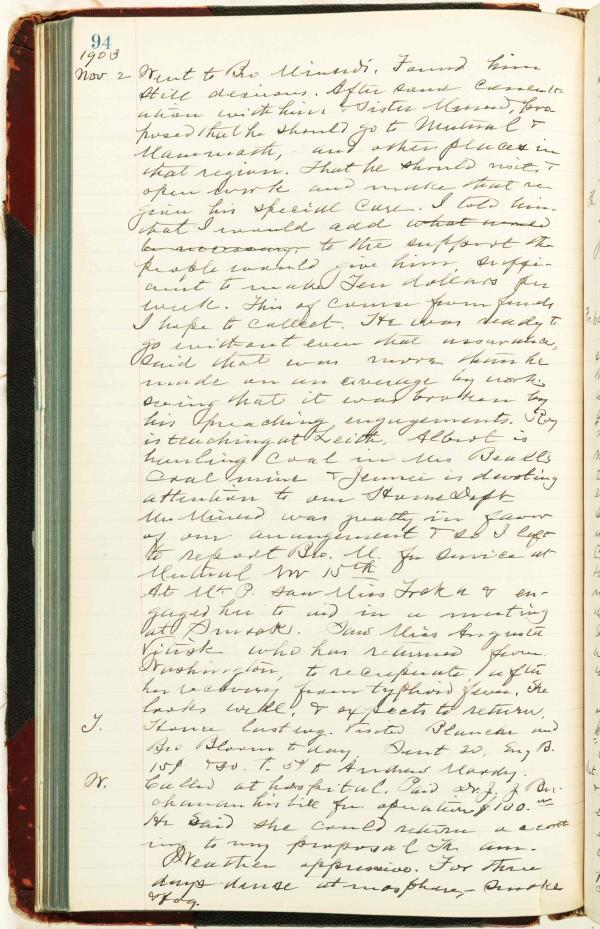 94
1903
Nov 2 Went to Bro Minerds. Found him
still desirous. After some conver
ation with him & Sister Minerd, pro
posed that he should go to Mutual &
Mammoth, and other places in
that region. That he should visit &
open work and make that re
gion his special care. I told him
that I would add what would
be necessary to the support the
people would give him, suffi-
cient to make Ten dollars per
week. This of course from funds
I hope to collect. He was ready to
go without even that assurance,
said that was more than he
made on an average by work
seeing that it was broken by
his preaching engagements. Roy
is teaching at Leith, Albert is
hauling coal in Mrs Bealls
Coal mine & Jennie is devoting
attention to our Home Dept
Mrs Minerd was greatly in favor
of our arrangement & so I left
to report Bro. M. for service at
Mutual Nov 15th
At Mt P. saw Miss & en-
gaged her to aid in a meeting
at Smock. Saw Miss Augusta
who has returned from
Washington, to recuperate after
her recovery from typhoid fever. She
looks well, & expects to return.
T. Home last evg. Visited Blanche and
Bro Bloom today. Sent 20.
15¢ & to Andrew Moody.
W. Called at hospital. Paid Dr. J. J Bu-
chanan his bill for operation $100.00
He said she could return accord
ing to my proposal Th am.
Weather oppressive. For three
days dense atmosphere, - smoke
& fog.